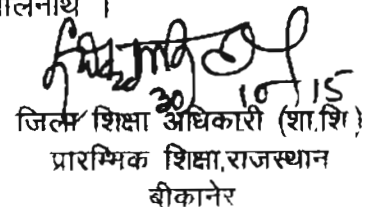 लनाथ ।
30 10 15
जिला शिक्षा अधिकारी (शा.शि.)
प्रारम्भिक शिक्षा,राजस्थान
बीकानेर